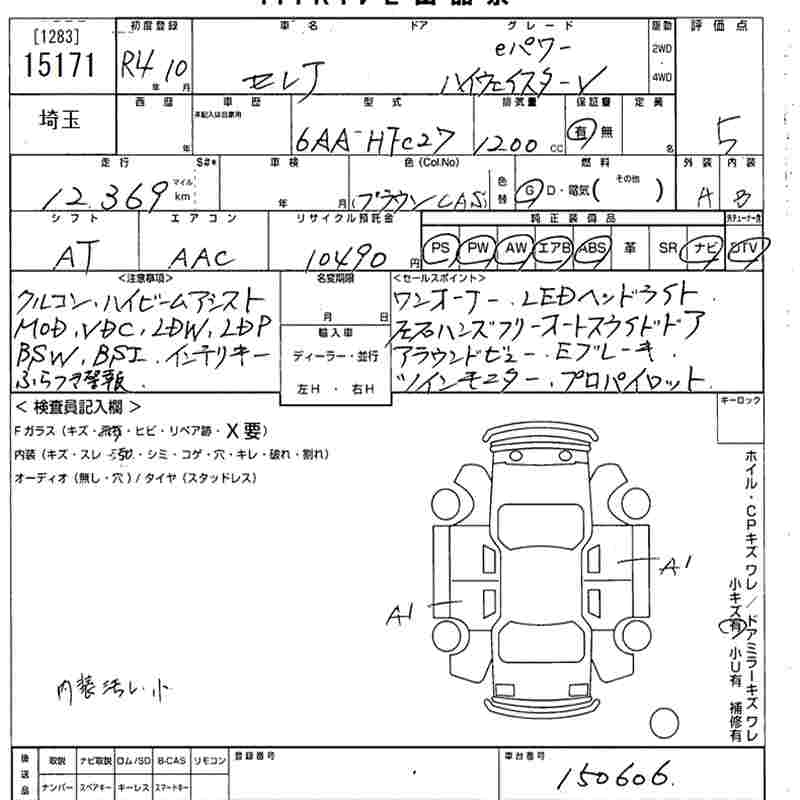 [1283]
15171
初度登録
R4 10
年 月
車名 ドア グレード
セレナ
eパワー
ハイウェイスターV
駆動
2WD
4WD
評価点
5
埼玉
西暦
年
車歴
未記入は自家用
型式
6AA-HFC27
排気量
1200 CC
保証書
有 無
定員
名
走行
12,369
マイル
km
S#*
車検
年 月
色(Col.No)
(ブラウン CAS)
色替
燃料
G D・電気( その他 )
外装 内装
A B
シフト
AT
エアコン
AAC
リサイクル預託金
10490 円
純正装備品
PS PW AW エアB ABS 革 SR ナビ
TV
<注意事項>
クルコン、ハイビームアシスト
MOD、VDC、LDW、LDP
BSW、BSI、インテリキー
ふらつき警報、
名変期限
月 日
輸入車
ディーラー・並行
左H ・ 右H
<セールスポイント>
ワンオーナー、LEDヘッドライト、
左右ハンズフリーオートスライドドア
アラウンドビュー、Eブレーキ
ツインモニター、プロパイロット
< 検査員記入欄 >
Fガラス(キズ・飛石・ヒビ・リペア跡・X要)
内装(キズ・スレ・汚れ・シミ・コゲ・穴・キレ・破れ・割れ)
オーディオ(無し・穴)/タイヤ(スタッドレス)
キーロック
A1
A1
内装汚レ小
ホイル・CPキズワレ/ドアミラーキズワレ
小キズ有 小U有 補修有
後送品
取説 ナビ取説 ロム/SD B-CAS リモコン
ナンバー スペアキー キーレス スマートキー
登録番号
車台番号
150606.